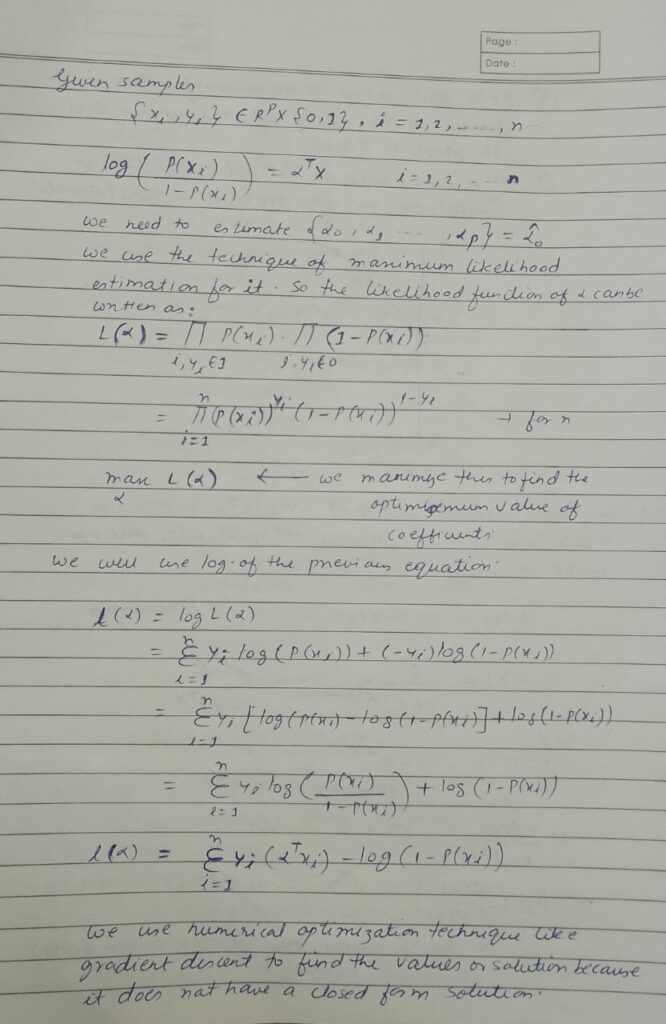 Page :
Date :
Given samples
{x_i, y_i} ∈ R^p X {0,1}, i = 1,2, ----, n
log ( P(x_i) / 1-P(x_i) ) = α^T x i = 1,2, --- n
we need to estimate {α_0, α_1 ---, α_p} = α̂_0
we use the technique of maximum likelihood
estimation for it. So the likelihood function of α can be
written as:
L(α) = Π P(x_i) . Π (1-P(x_i))
i, y_i ∈ 1 i. y_i ∈ 0
= Π_{i=1}^{n} (P(x_i))^{y_i} (1-P(x_i))^{1-y_i} → for n
max_α L(α) ← we maximize this to find the
optimigemum value of
coefficients
we will use log of the previous equation.
l(α) = log L(α)
= Σ_{i=1}^{n} y_i log(P(x_i)) + (-y_i) log(1-P(x_i))
= Σ_{i=1}^{n} y_i [log(P(x_i) - log(1-P(x_i)] + log(1-P(x_i))
= Σ_{i=1}^{n} y_i log ( P(x_i) / 1-P(x_i) ) + log(1-P(x_i))
l(α) = Σ_{i=1}^{n} y_i (α^T x_i) - log(1-P(x_i))
we use numerical optimization technique like
gradient descent to find the values or solution because
it does not have a closed form solution.